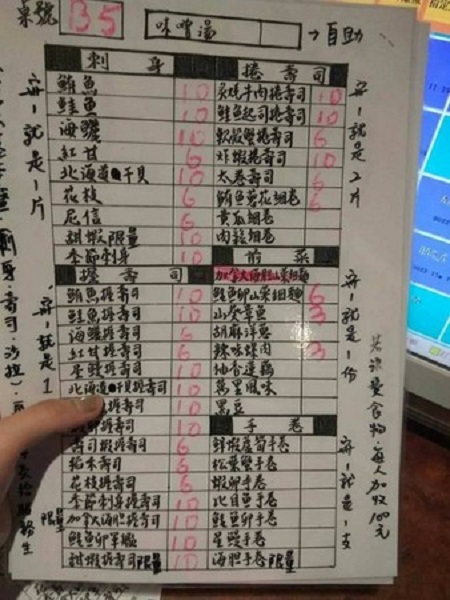 桌號 B5 味噌湯 →自助
刺身
鮪魚 10
鮭魚 10
海鱺 10
紅甘 6
北海道干貝 10
花枝 6
尼信 6
甜蝦限量 10
季節刺身 10
握壽司
鮪魚握壽司 10
鮭魚握壽司 10
海鱺握壽司 6
紅甘握壽司 6
星鰻握壽司 10
北海道干貝握壽司 10
握壽司 10
握壽司 10
壽司蝦握壽司 6
稻禾壽司 6
花枝壽司 6
季節刺身握壽司 10
限量 加拿大海膽握壽司 10
鮭魚卵軍艦 10
甜蝦握壽司限量 10
捲壽司
炙燒牛肉捲壽司 10
鮭魚起司捲壽司 10
軟殼蟹捲壽司 6
炸蝦捲壽司 10
太卷壽司 6
鮪魚蔥花細卷 6
黃瓜細卷
肉鬆細卷
前菜
鮭魚卵山藥細麵 6
山葵章魚 3
胡麻洋蔥
辣味螺肉 3
柚香蓮藕
萬里風味
黑豆
手卷
鮮蝦蘆筍手卷
松葉蟹手卷
蝦卵手卷
北目魚手卷
鮭魚卵手卷
星鰻手卷
海膽手卷限量
寫1就是1片
寫1就是2片
寫1就是1份
寫1就是1支
寫1就是1
刺身、壽司、沙拉
若浪費食物，每人加收100元